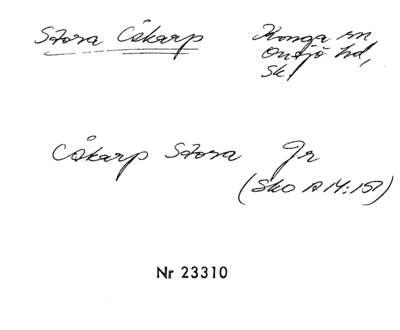 Stora Åkarp Konga sn,
Onsjö hd,
Sk.
Åkarp Stora Gr
(SkO 14:15)
Nr 23310